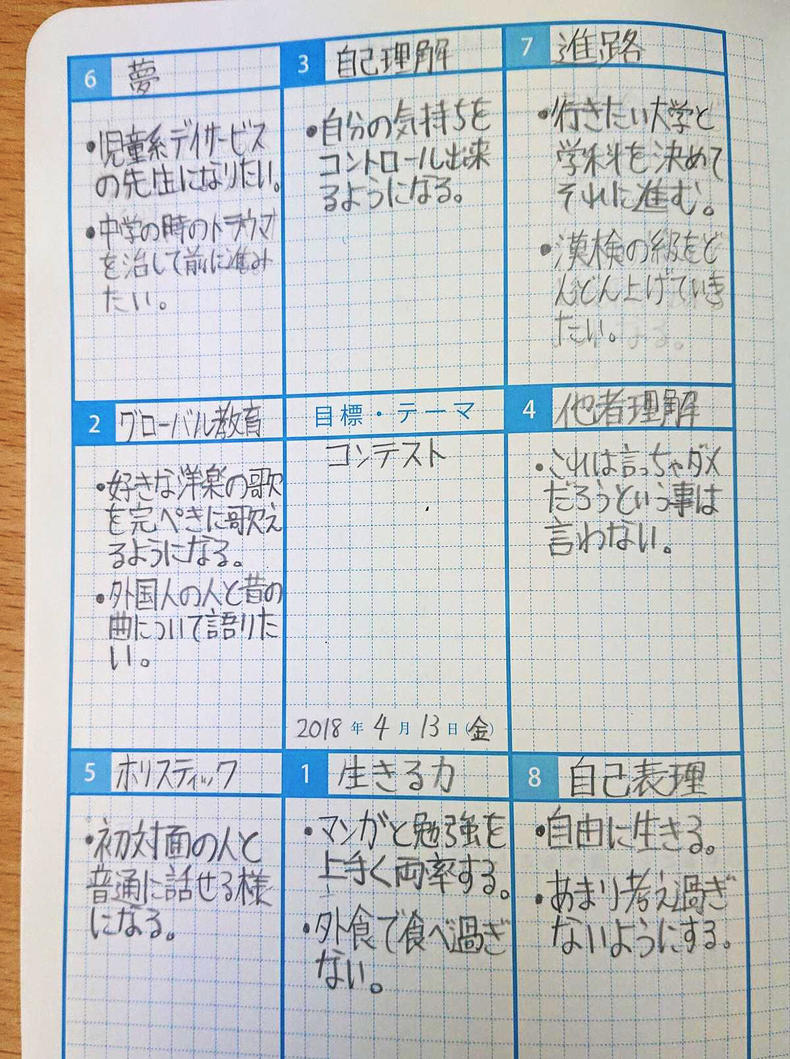 6 夢
・児童系デイサービス
の先生になりたい。
・中学の時のトラウマ
を治して前に進み
たい。
3 自己理解
・自分の気持ちを
コントロール出来
るようになる。
7 進路
・行きたい大学と
学科を決めて
それに進む。
・漢検の級をど
んどん上げていき
たい。
2 グローバル教育
・好きな洋楽の歌
を完ぺきに歌え
るようになる。
・外国人の人と昔の
曲について語りた
い。
目標・テーマ
コンテスト
2018年4月13日(金)
4 他者理解
・これは言っちゃダメ
だろうという事は
言わない。
5 ホリスティック
・初対面の人と
普通に話せる様
になる。
1 生きる力
・マンガと勉強を
上手く両率する。
・外食で食べ過ぎ
ない。
8 自己表理
・自由に生きる。
・あまり考え過ぎ
ないようにする。